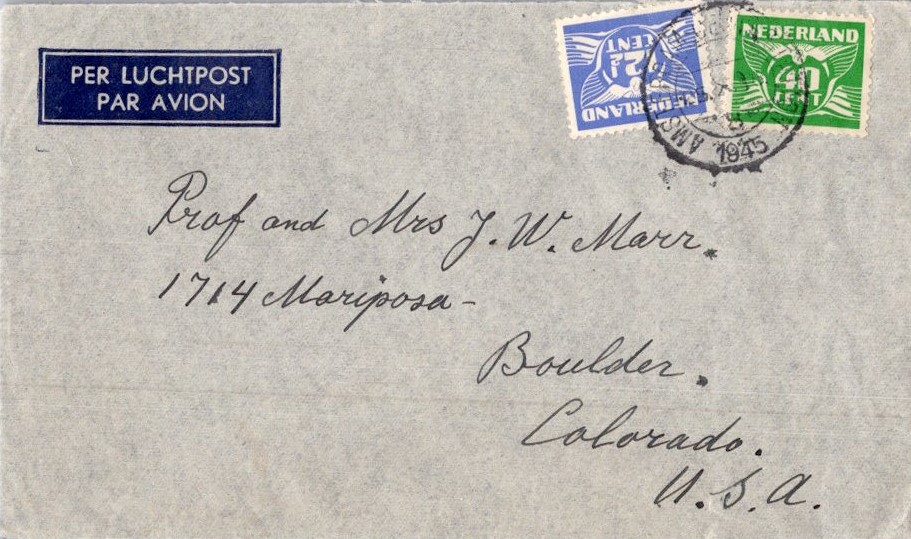 PER LUCHTPOST
PAR AVION
12½
CENT
NEDERLAND
NEDERLAND
40
CENT
1945
Prof and Mrs J. W. Marr.
1714 Mariposa-
Boulder.
Colorado.
U.S.A.